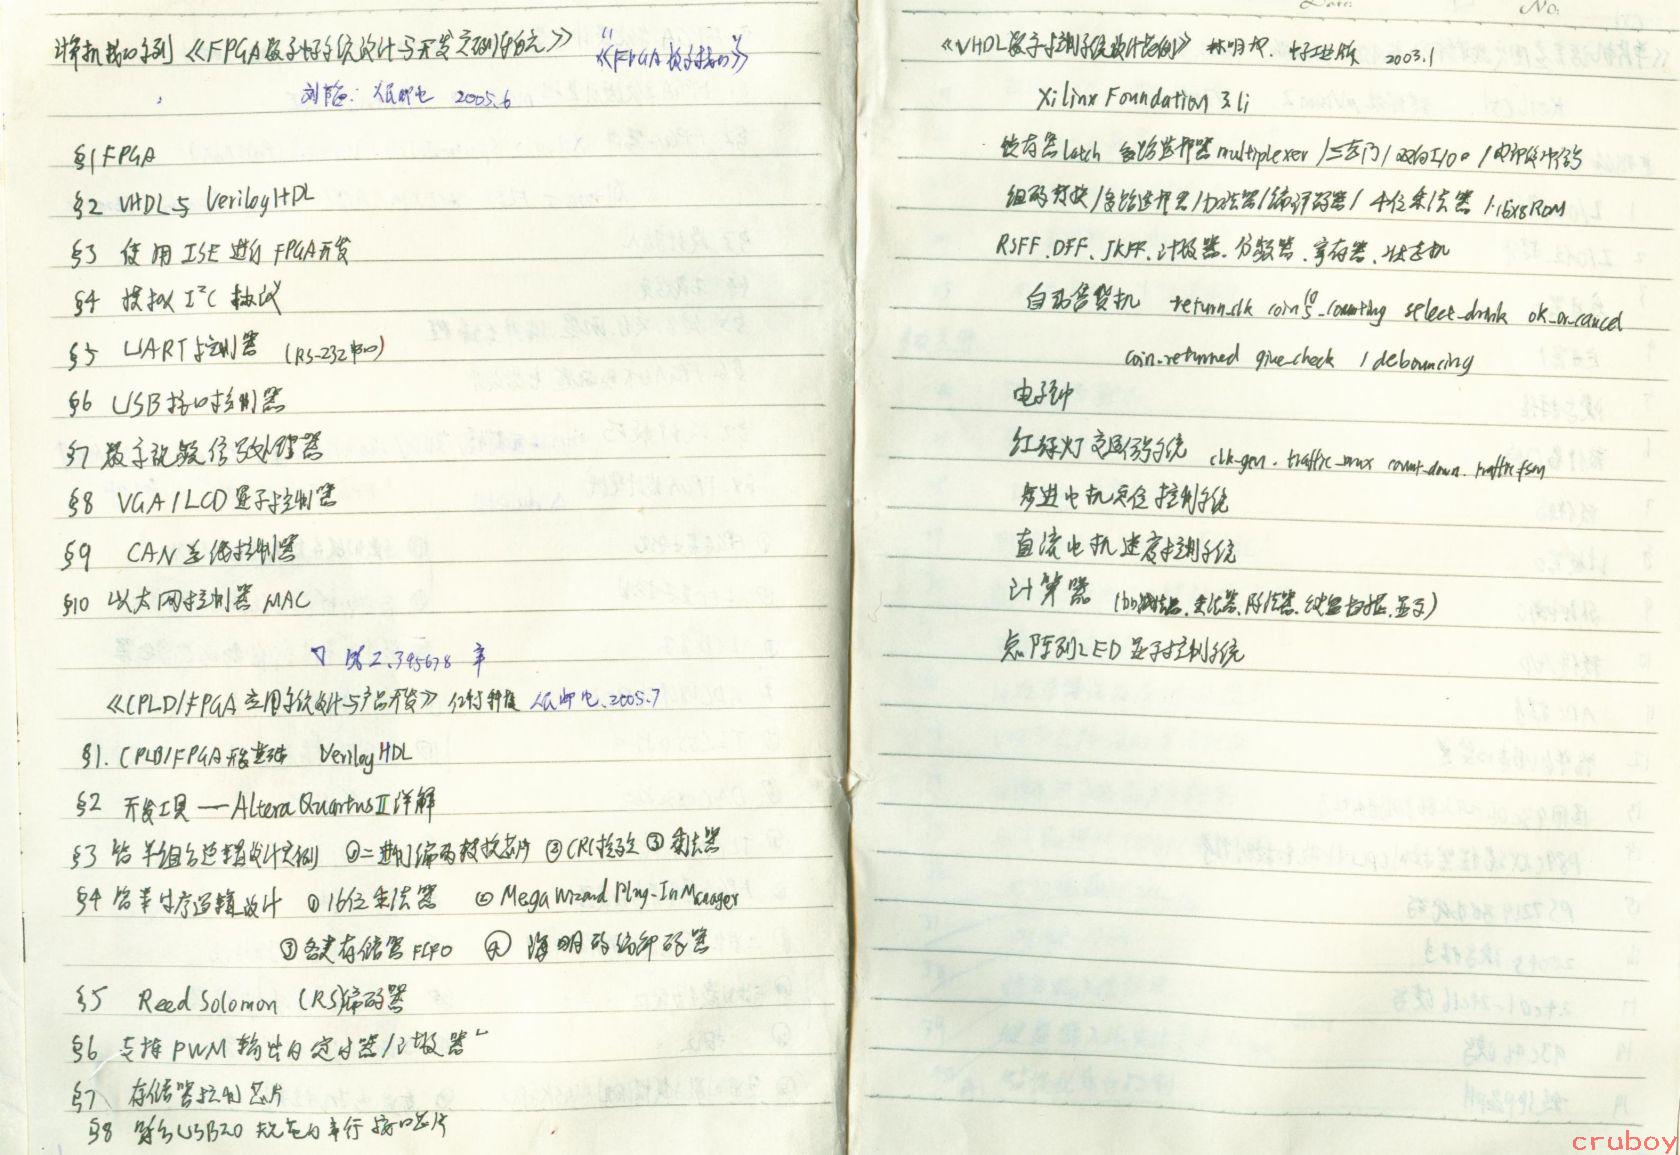 计算机接口系列 《FPGA数字电子系统设计与开发实例导航》 "《FPGA 数字接口》"
刘韬 人民邮电 2005.6
§1 FPGA
§2 VHDL与 VerilogHDL
§3 使用 ISE 进行 FPGA开发
§4 模拟 I²C 协议
§5 UART控制器 (RS-232串口)
§6 USB接口控制器
§7 数字视频信号处理器
§8 VGA/LCD 显示控制器
§9 CAN 总线控制器
§10 以太网控制器 MAC
第2.345678 章
《CPLD/FPGA 应用系统设计与产品开发》 人民邮电.2005.7
§1. CPLD/FPGA开发基础 VerilogHDL
§2 开发工具——Altera Quartus II 详解
§3 简单组合逻辑设计实例 ①二进制编码转换芯片 ②CRC校验 ③乘法器
§4 简单时序逻辑设计 ①16位乘法器 ② Mega Wizard Plug-In Manager
③各类存储器 FIFO ④ 海明码编译码器
§5 Reed Solomon (RS)编码器
§6 支持 PWM 输出的定时器/计数器
§7 存储器控制芯片
§8 符合USB2.0 规范的串行接口芯片
《VHDL数字控制系统设计范例》 林明权 电子工业版 2003.1
Xilinx Foundation 3.1i
锁存器Latch 多路选择器multiplexer /三态门/双向I/O /内部缓冲
组码转换/多路选择器/加法器/编译码器/ 4位乘法器 /16x8ROM
RSFF.DFF.JKFF.计数器.分频器.寄存器.状态机
自动售货机 return_clk coin 10 5_counting select_drink ok_or_cancel
coin_returned give_check / debouncing
电子钟
红绿灯交通信号系统 clk_gen. traffic_mux count_down. traffic_fsm
步进电机定位控制系统
直流电机速度控制系统
计算器 (加减法器.乘法器.除法器.键盘扫描.显示)
点阵列LED显示控制系统
cruboy